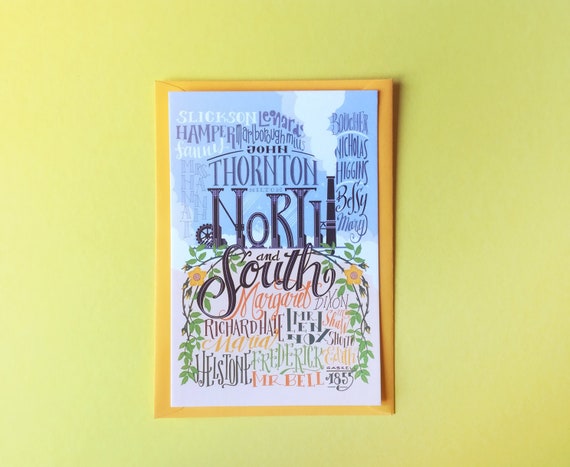 SLICKSON Leonards
HAMPER Marlborough mills
fanny
JOHN
THORNTON
MILTON
BOUCHER
NICHOLAS
HIGGINS
Bessy
Mary
NORTH
and
South
Margaret DIXON
RICHARD HALE
Maria
LENNOX
Shaw
Sholto
Edith
HELSTONE FREDERICK
MR BELL
GASKELL
1855